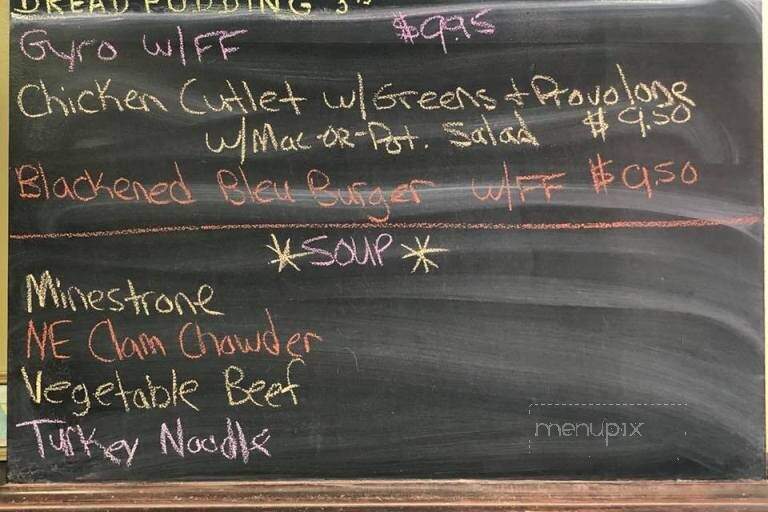 BREAD PUDDING 3
Gyro w/FF $9.95
Chicken Cutlet w/Greens + Provolone
w/Mac-or-Pot. Salad $9.50
Blackened Bleu Burger w/FF $9.50
*SOUP*
Minestrone
NE Clam Chowder
Vegetable Beef
Turkey Noodle
menupix